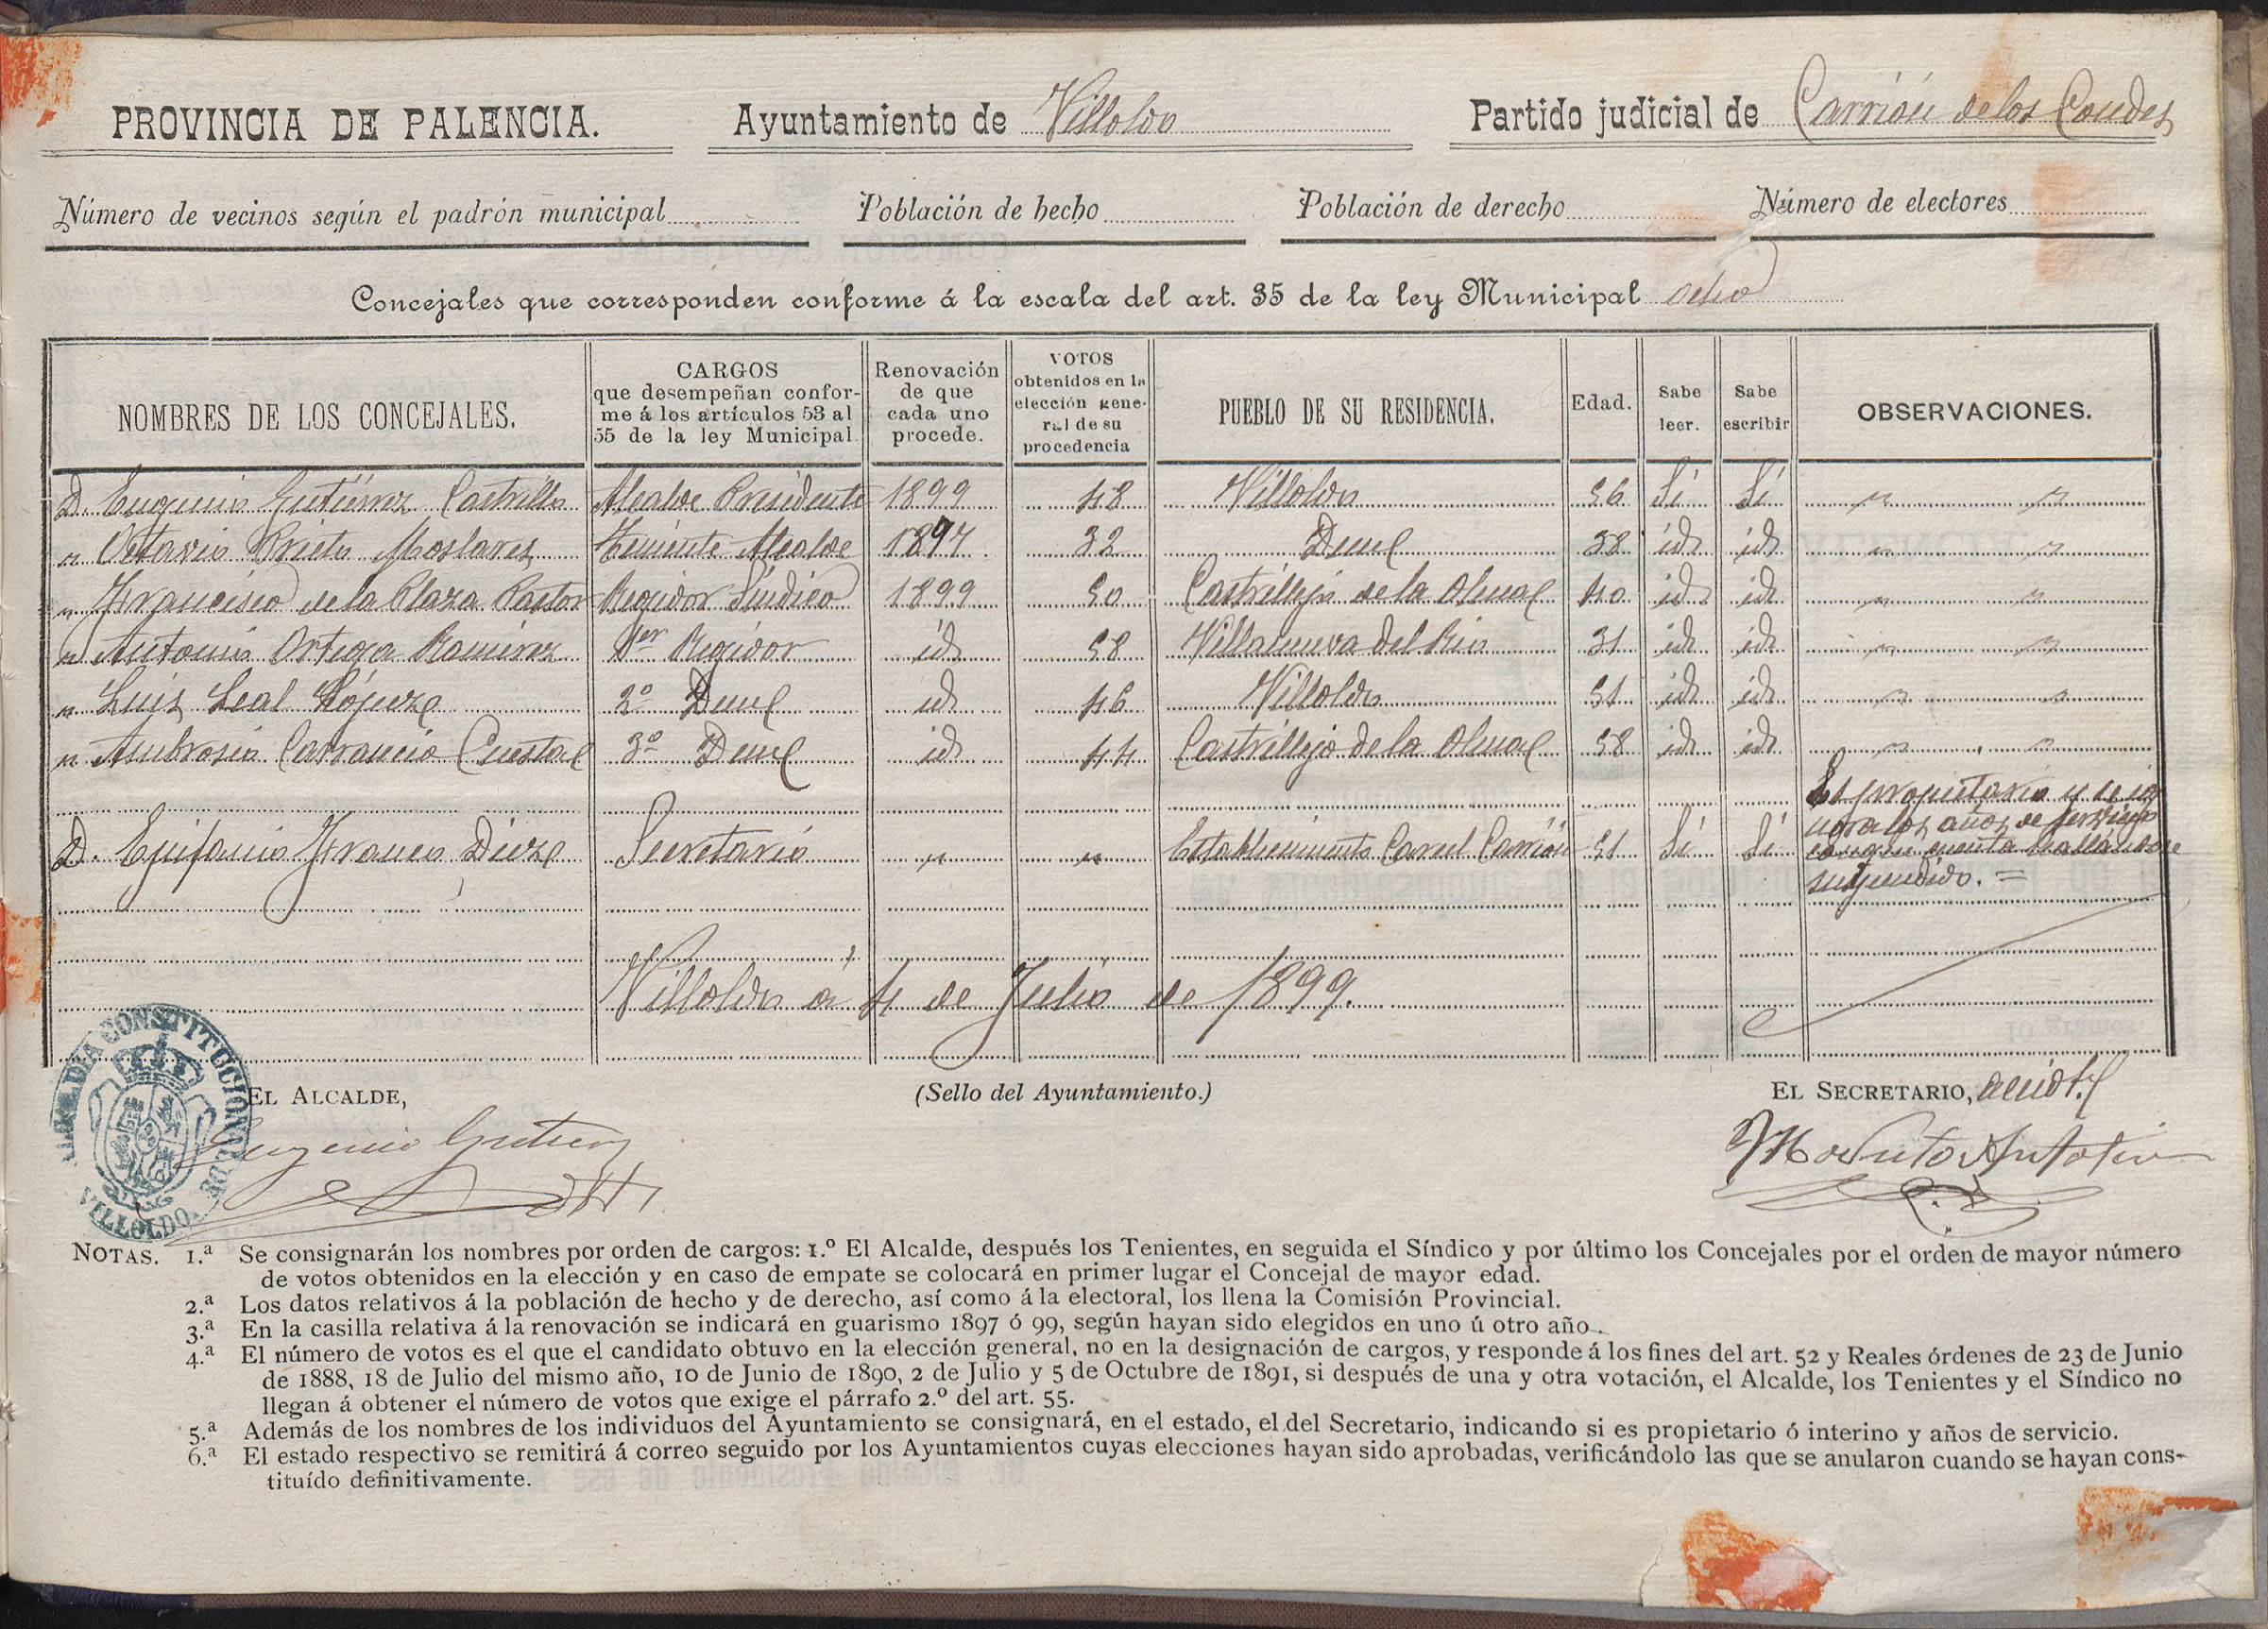 PROVINCIA DE PALENCIA. Ayuntamiento de Villoldo Partido judicial de Carrión de los Condes
Número de vecinos según el padrón municipal Población de hecho Población de derecho Número de electores
Concejales que corresponden conforme á la escala del art. 35 de la ley Municipal ocho
NOMBRES DE LOS CONCEJALES.
CARGOS
que desempeñan confor-
me á los artículos 53 al
55 de la ley Municipal.
Renovación
de que
cada uno
procede.
VOTOS
obtenidos en la
elección gene-
ral de su
procedencia
PUEBLO DE SU RESIDENCIA.
Edad.
Sabe
leer.
Sabe
escribir
OBSERVACIONES.
D. Eugenio Gutiérrez Castrillo Alcalde Presidente 1899 48 Villoldo 56 Sí Sí " "
" Octavio Prieto Moslares Teniente Alcalde 1897 32 Duel 38 id id " "
" Francisco de la Plaza Pastor Regidor Síndico 1899 50 Castrillejo de la Olma 40 id id " "
" Antonio Ortega Ramírez 1er Regidor id 58 Villanueva del Rio 31 id id " "
" Luis Leal 2º id 46 Villoldo 51 id id " "
" Ambrosio Carrancio Cuesta 3º id 44 Castrillejo de la Olma 58 id id " "
D. Epifanio Franco Diez Secretario " " Establecimiento Carcel Carrión 51 Sí Sí
Es propietario y se ig
nora los años de servicio
con que cuenta hallándose
suspendido. =
Villoldo á 4 de Julio de 1899.
ALCALDIA CONSTITUCIONAL DE VILLOLDO
EL ALCALDE, (Sello del Ayuntamiento.) EL SECRETARIO, accidtl
Eugenio Gutierrez Modesto Antolin
NOTAS. 1.ª Se consignarán los nombres por orden de cargos: 1.º El Alcalde, después los Tenientes, en seguida el Síndico y por último los Concejales por el orden de mayor número
de votos obtenidos en la elección y en caso de empate se colocará en primer lugar el Concejal de mayor edad.
2.ª Los datos relativos á la población de hecho y de derecho, así como á la electoral, los llena la Comisión Provincial.
3.ª En la casilla relativa á la renovación se indicará en guarismo 1897 ó 99, según hayan sido elegidos en uno ú otro año.
4.ª El número de votos es el que el candidato obtuvo en la elección general, no en la designación de cargos, y responde á los fines del art. 52 y Reales órdenes de 23 de Junio
de 1888, 18 de Julio del mismo año, 10 de Junio de 1890, 2 de Julio y 5 de Octubre de 1891, si después de una y otra votación, el Alcalde, los Tenientes y el Síndico no
llegan á obtener el número de votos que exige el párrafo 2.º del art. 55.
5.ª Además de los nombres de los individuos del Ayuntamiento se consignará, en el estado, el del Secretario, indicando si es propietario ó interino y años de servicio.
6.ª El estado respectivo se remitirá á correo seguido por los Ayuntamientos cuyas elecciones hayan sido aprobadas, verificándolo las que se anularon cuando se hayan cons-
tituído definitivamente.